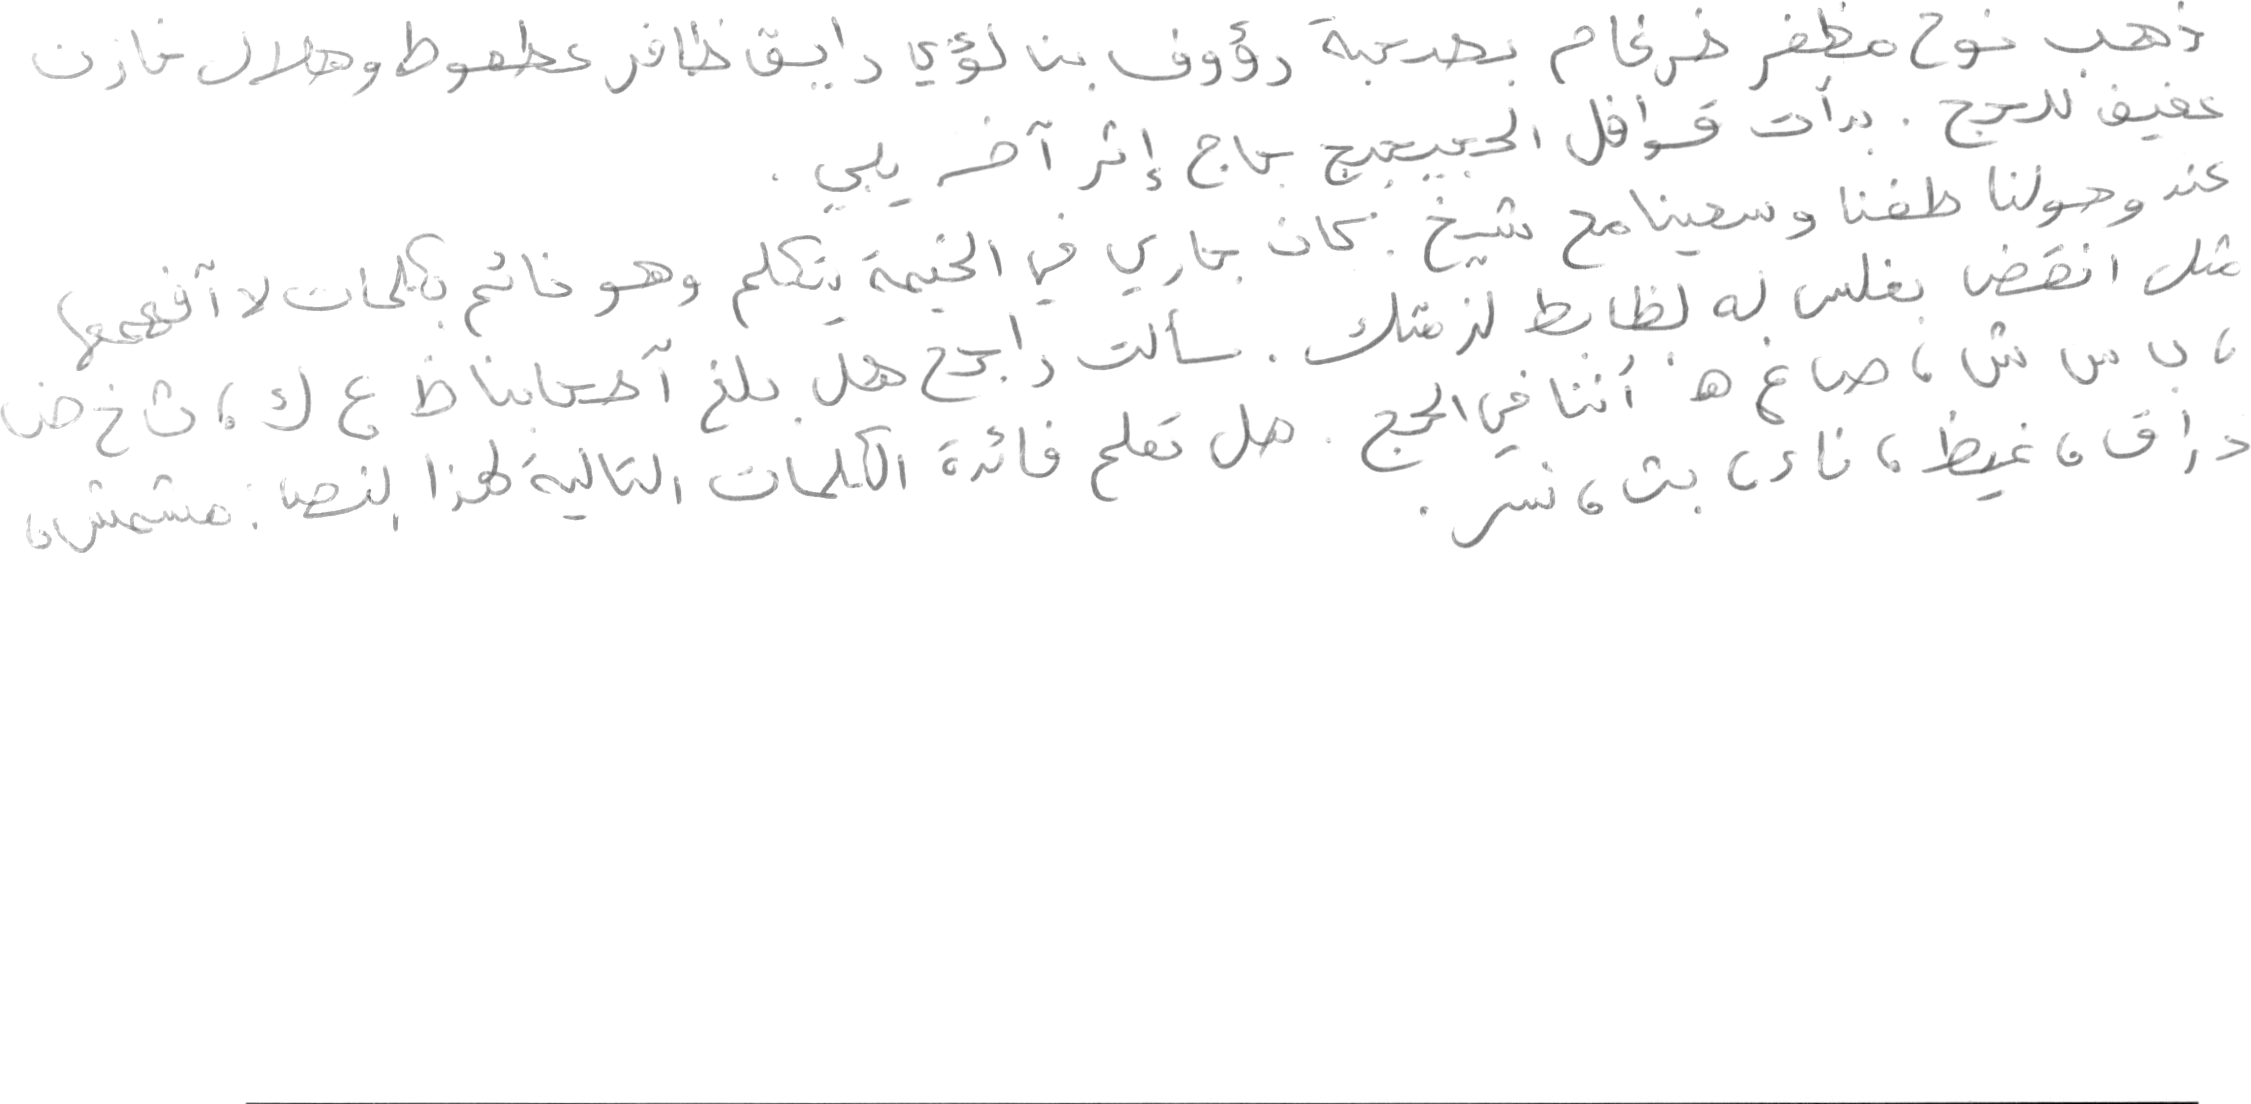 ذهب نوح مظفر ضرغام بصحبة رؤوف بن لؤي رايق ظافر عطعوط وهلال خازن
عفيف للحج . بدأت قوافل الحجيج حاج إثر آخر يلبي .
عند وصولنا طفنا وسعينا مع شيخ . كان جاري في الخيمة يتكلم وهو نائم بكلمات لا أفهمها
مثل انقض بغلس له لظابط لزمتك . سألت راجح هل بلغ أصحابنا ظ ع ك ، ث خ ض
، ب س ش ، ص غ ه أننا في الحج . هل تعلم فائدة الكلمات التالية لهذا النص : مشمش ،
راق ، غيظ ، نادى ، بث ، نسر .